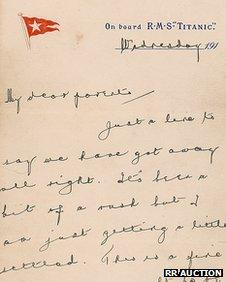 On board R.M.S. "TITANIC".
Wednesday 191
My dear parents
Just a line to
say we have got away
all right. It's been a
bit of a rush but I
am just getting a little
settled. This is a fine
RR AUCTION